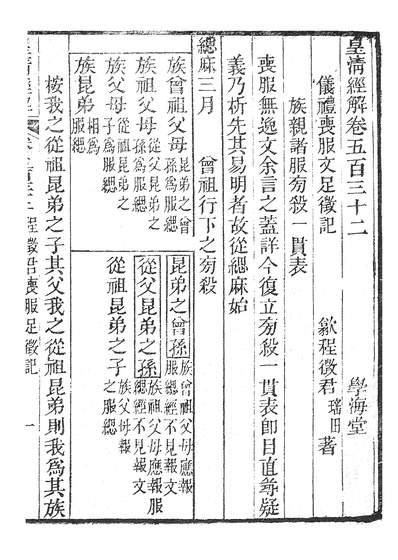 皇清經解卷五百三十二　學海堂
儀禮喪服文足徵記　歙程徵君瑤田著
族親諸服旁殺一貫表
喪服無逸文余言之葢詳今復立旁殺一貫表卽目直尋疑
義乃析先其易明者故從緦麻始
緦麻三月　曾祖行下之旁殺
族曾祖父母昆弟之曾孫爲服緦
族祖父母從父昆弟之孫爲服緦
族父母從祖昆弟之子爲服緦
族昆弟相爲服緦
昆弟之曾孫族曾祖父母應報服緦經不見報文
從父昆弟之孫族祖父母應報服緦經不見報文
從祖昆弟之子族父母報之服緦
桉我之從祖昆弟之子其父我之從祖昆弟則我爲其族
程徵君喪服足徵記　一